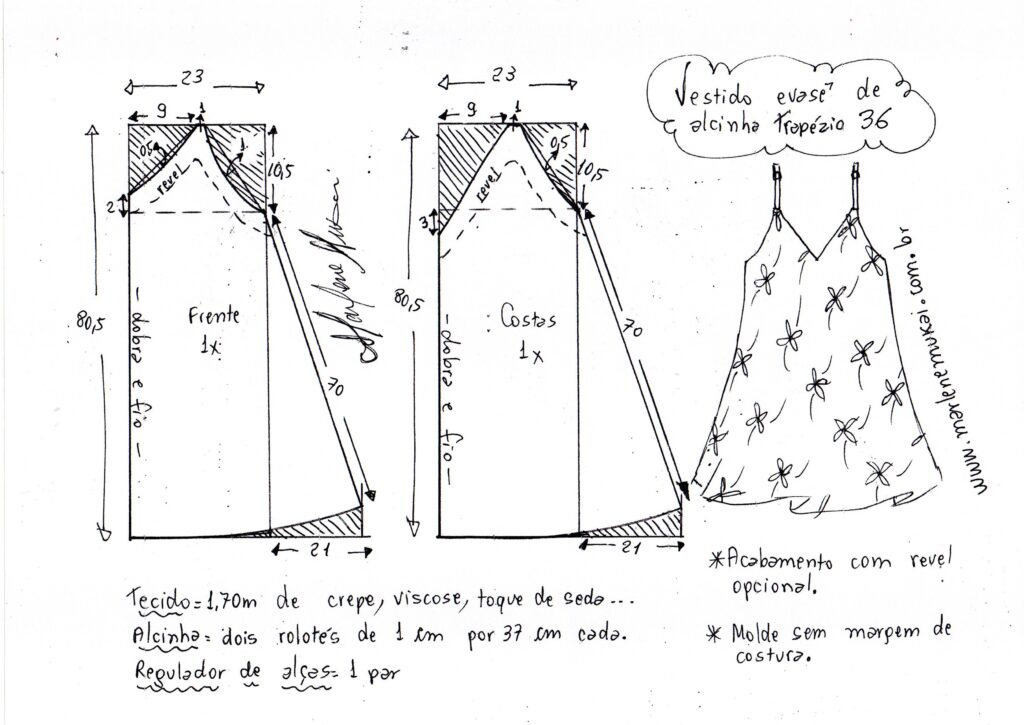 Vestido evasê de
alcinha trapézio 36
23
9
1
0,5
1
revel
10,5
2
80,5
Frente
1x
dobra e fio
70
21
Marlene Mukai
23
9
1
0,5
revel
10,5
3
80,5
Costas
1x
dobra e fio
70
21
www.marlenemukai.com.br
*Acabamento com revel
opcional.
* Molde sem margem de
costura.
Tecido=1,70m de crepe, viscose, toque de seda...
Alcinha= dois rolotés de 1 cm por 37 cm cada.
Regulador de alças= 1 par